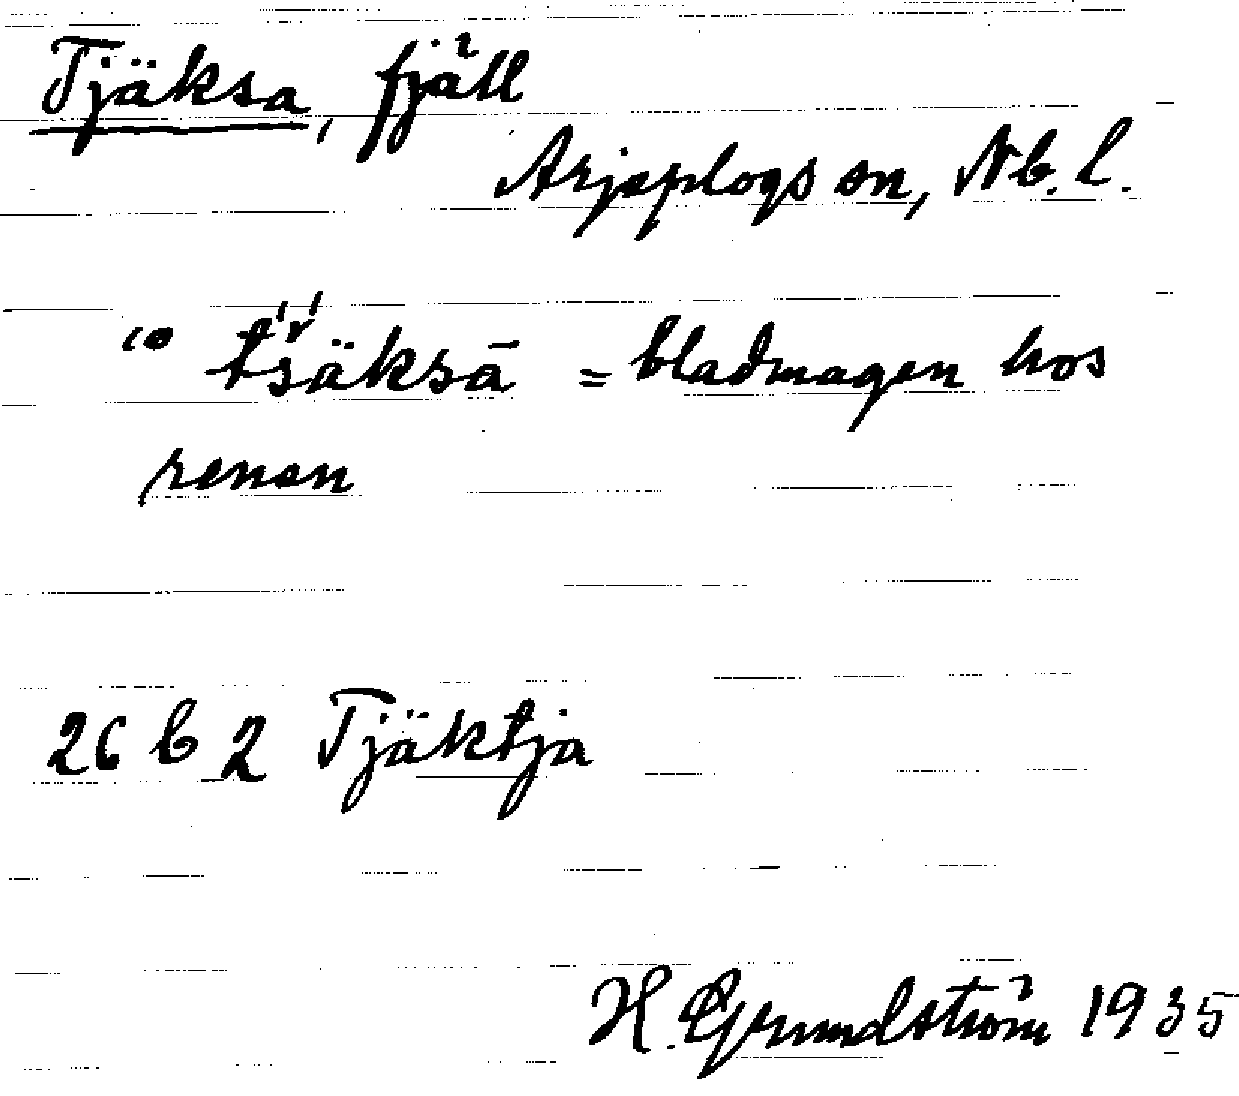 Tjäksa, fjäll
Arjeplogs sn, Nb. l.
"⁰ t́š́äksā = bladmagen hos
renen
26 C 2 Tjäktja
H. Grundström 1935